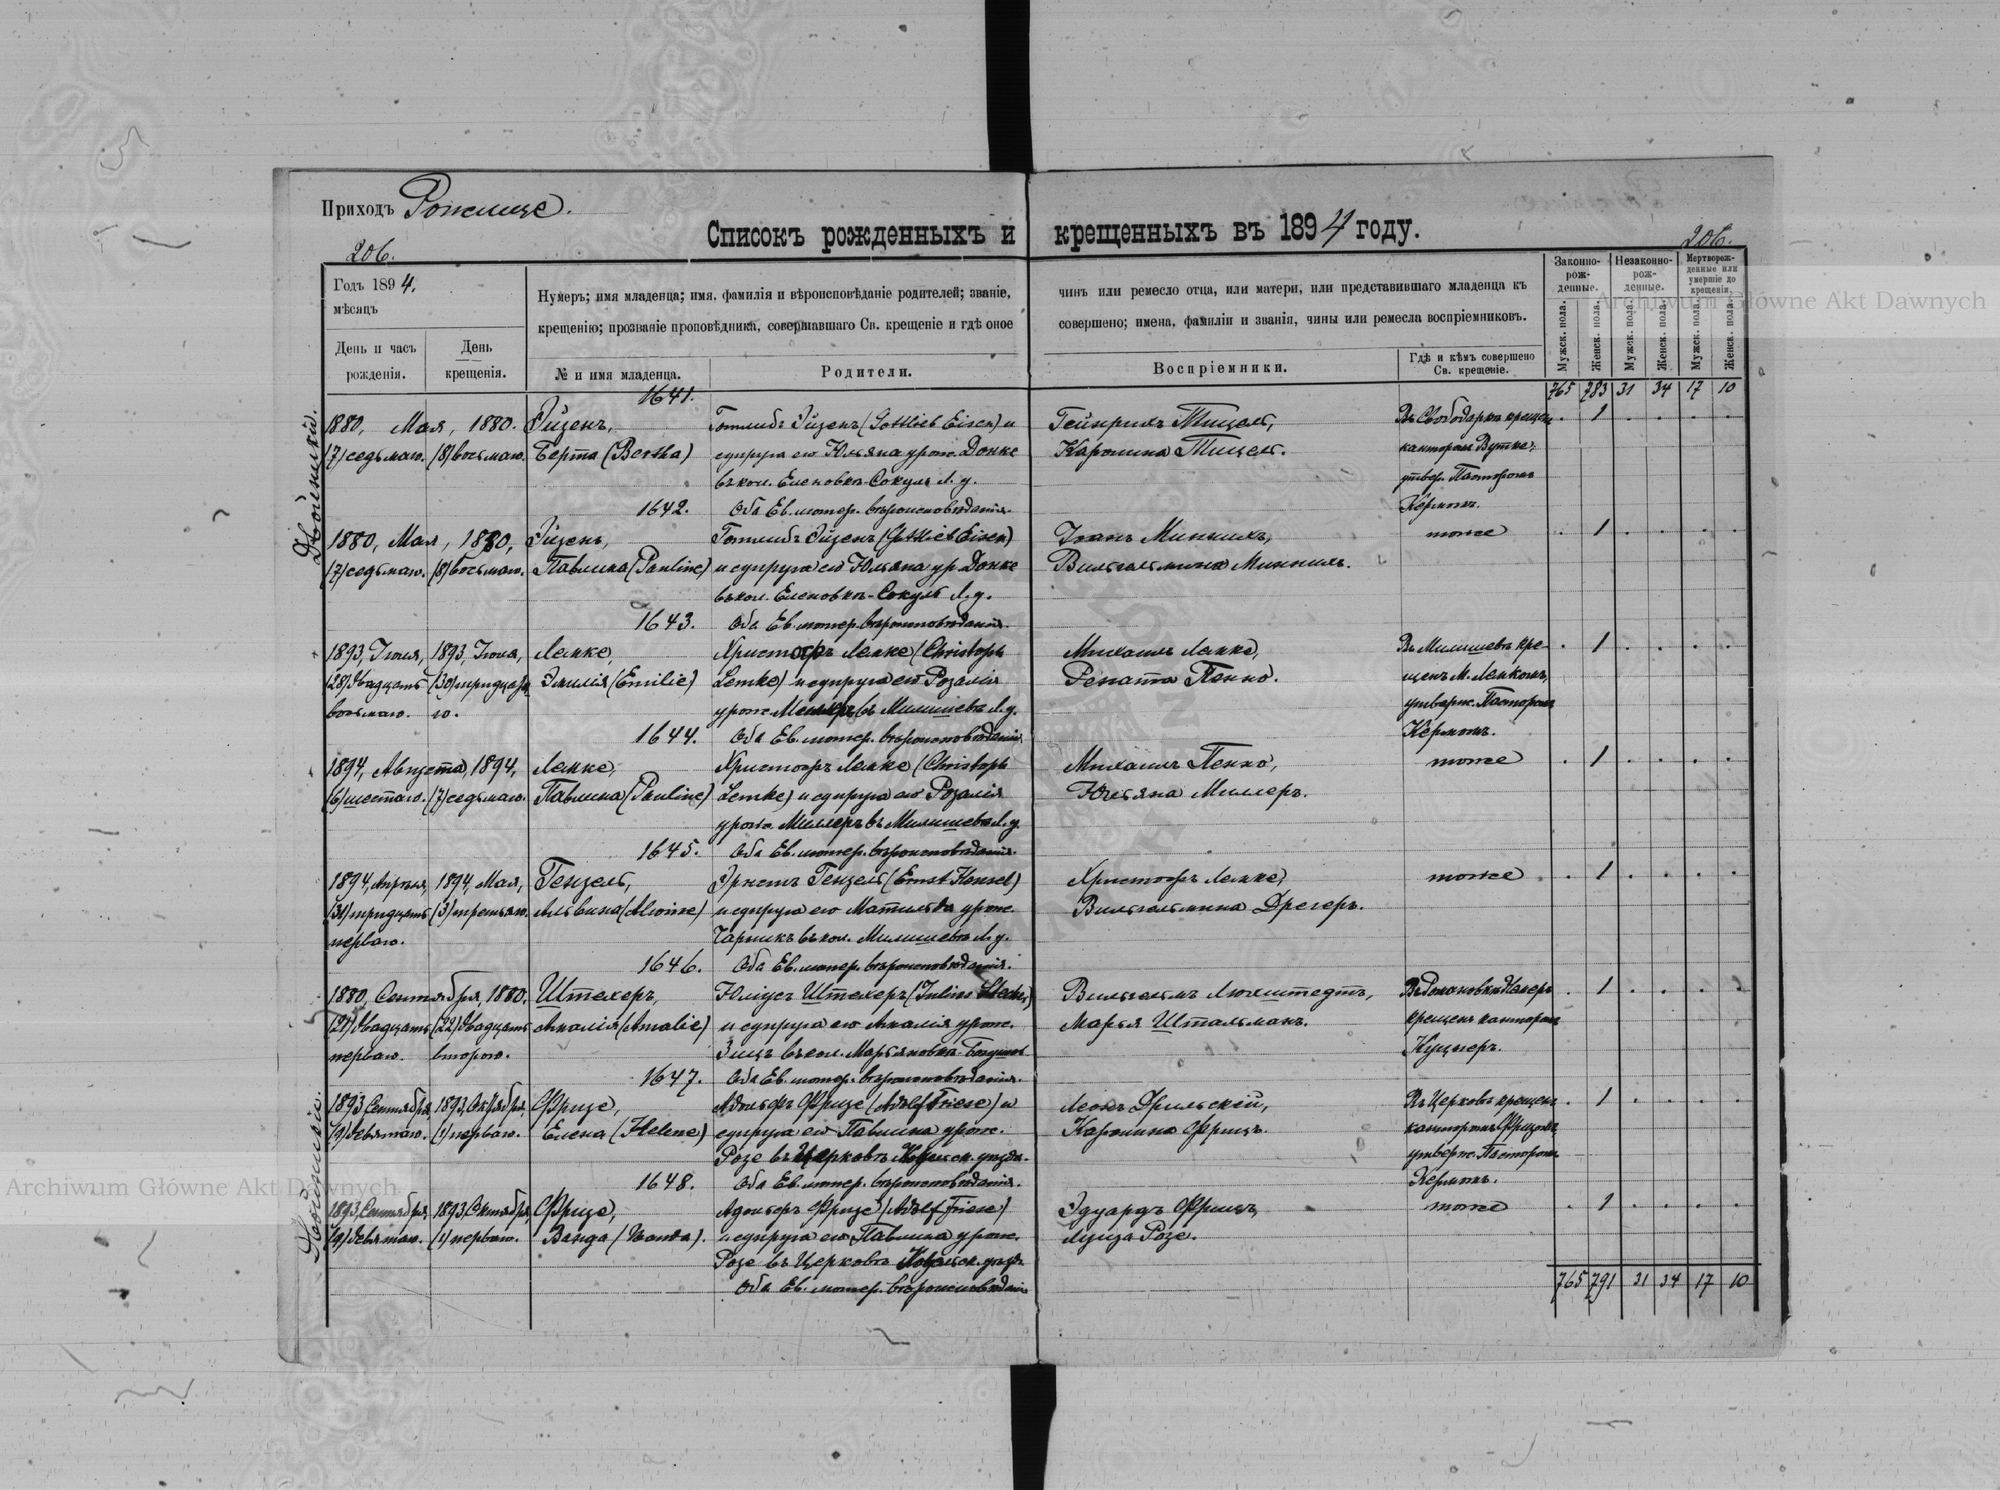 Приходъ Рожище.
Списокъ рожденныхъ и крещенныхъ въ 1894 году.
206.
206.
Годъ 1894.
мѣсяцъ
День и часъ рожденія.
День крещенія.
Нумеръ; имя младенца; имя, фамилія и вѣроисповѣданіе родителей; званіе, чинъ или ремесло отца, или матери, или представившаго младенца къ
крещенію; прозваніе проповѣдника, совершавшаго Св. крещеніе и гдѣ оное совершено; имена, фамиліи и званія, чины или ремесла воспріемниковъ.
№ и имя младенца.
Родители.
Воспріемники.
Гдѣ и кѣмъ совершено Св. крещеніе.
Законно-рож-денные.
Незаконно-рож-денные.
Мертворож-денные или умершіе до крещенія.
Мужск. пола. Женск. пола. Мужск. пола. Женск. пола. Мужск. пола. Женск. пола.
765 783 31 34 17 10
Двойники.
1641.
1880, Мая, 1880. Эйзенъ, Готлибъ Эйзенъ (Gottlieb Eisen) и Гейнрихъ Тицель, 1
(7) седьмаго. (8) восьмаго. Берта (Bertha) супруга его Юльяна урож. Донке Каролина Тицель. канторомъ Вутке,
въ кол. Еленовкѣ-Сокуль Л. у. утвер. Пасторомъ
1642. Оба Ев. лютер. вѣроисповѣданія. Кермомъ.
1880, Мая, 1880, Эйзенъ, Готлибъ Эйзенъ (Gottlieb Eisen) тоже 1
(7) седьмаго. (8) восьмаго. Павлина (Pauline) и супруга его Юльяна ур. Донке Вильгельмина
въ кол. Еленовкѣ-Сокуль Л. у.
1643. Оба Ев. лютер. вѣроисповѣданія.
1893, Іюля, 1893, Іюля, Лемке, Христофъ Лемке (Christoph Михаилъ Лемке, Въ Милишевѣ кре- 1
(28) двадцать (30) тридцата- Эмилія (Emilie) Lemke) и супруга его Розалія Рената Пенно. щенъ М. Лемкомъ,
восьмаго. го. урож. въ Милишевѣ Л. у. утверж. Пасторомъ
1644. Оба Ев. лютер. вѣроисповѣданія Кермомъ.
1894, Августа, 1894, Лемке, Христофъ Лемке (Christoph Михаилъ Пенно, тоже 1
(6) шестаго. (7) седьмаго. Павлина (Pauline) Lemke) и супруга его Розалія Юльяна Миллеръ.
урож. Миллеръ въ Милишевѣ Л. у.
1645. Оба Ев. лютер. вѣроисповѣданія.
1894, Апрѣля, 1894, Мая, Гензель, Эрнстъ Гензель (Ernst Hensel) Христофъ Лемке, тоже 1
(31) тридцать (3) третьяго. Альвина (Alwine) и супруга его Матильда урож. Вильгельмина Дрегеръ.
перваго. въ кол. Милишевѣ Л. у.
1646. Оба Ев. лютер. вѣроисповѣданія.
1880, Сентября, 1880. Штехеръ, Юліусъ Штехеръ (Julius Вильгельмъ Люхштедтъ, 1
(21) двадцать (22) двадцать Амалія (Amalie) и супруга его Амалія урож. Марья Штальманъ. крещенъ канторомъ
перваго. втораго. въ кол. Марьяновкѣ
1647. Оба Ев. лютер. вѣроисповѣданія.
Двойники.
1893, Сентября, 1893, Октября, Фризе, Адольфъ Фризе (Adolf Friese) и Леонъ Дрильскій, Въ Церковѣ крещенъ 1
(9) девятаго. (1) перваго. Елена (Helene) супруга его Павлина урож. Каролина Фрицъ. канторомъ
Розе въ Церковѣ утверж. Пасторомъ
1648. Оба Ев. лютер. вѣроисповѣданія. Кермомъ.
1893, Сентября, 1893, Октября, Фризе, Адольфъ Фризе (Adolf Friese) Эдуардъ Фрицъ, тоже 1
(9) девятаго. (1) перваго. Ванда (Wanda). и супруга его Павлина урож. Луиза Розе.
Розе въ Церковѣ
Оба Ев. лютер. вѣроисповѣданія
765 791 31 34 17 10
Archiwum Główne Akt Dawnych
Archiwum Główne Akt Dawnych